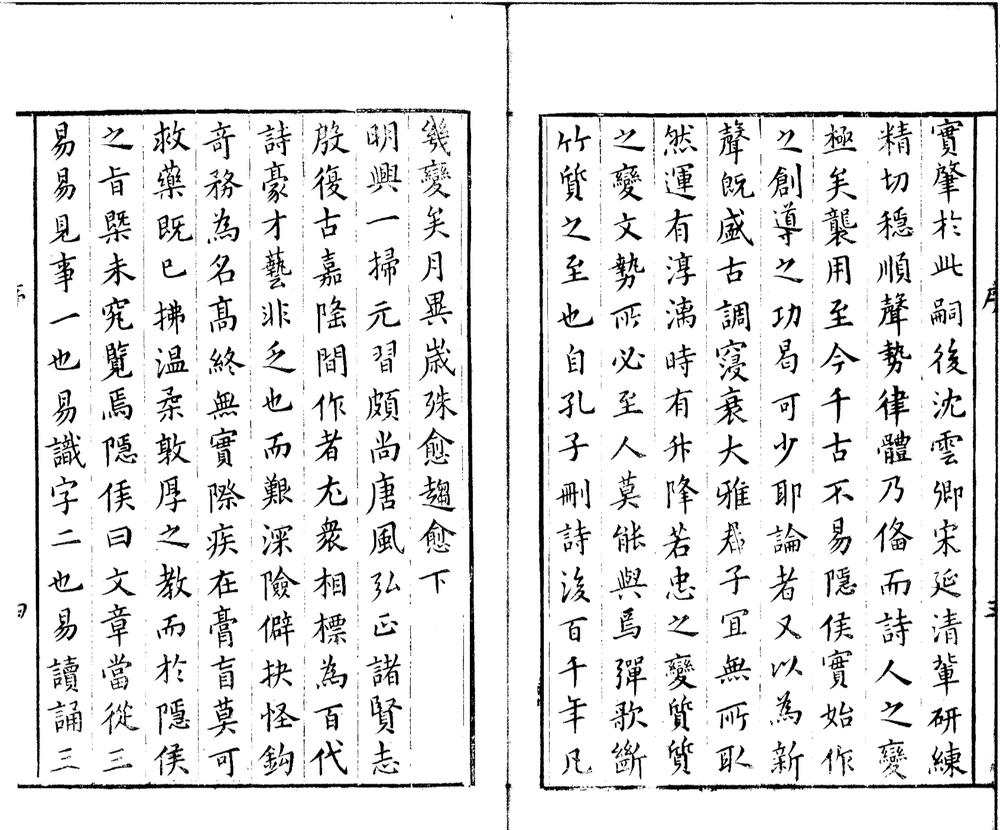 序
五
實肇於此嗣後沈雲卿宋延清輩研練
精切穩順聲勢律體乃俻而詩人之變
極矣襲用至今千古不易隱侯實始作
之創導之功曷可少耶論者又以為新
聲既盛古調寖衰大雅君子冝無所取
然運有淳漓時有升降若忠之變質質
之變文勢所必至人莫能與焉彈歌斷
竹質之至也自孔子刪詩後百千年凡
幾變矣月異歲殊愈趨愈下
明興一掃元習頗尚唐風弘正諸賢志
殷復古嘉隆間作者尤衆相標為百代
詩豪才藝非乏也而艱深險僻抉怪鈎
奇務為名髙終無實際疾在膏肓莫可
救藥既已拂温柔敦厚之教而於隱侯
之旨槩未究覽焉隱侯曰文章當從三
易易見事一也易識字二也易讀誦三